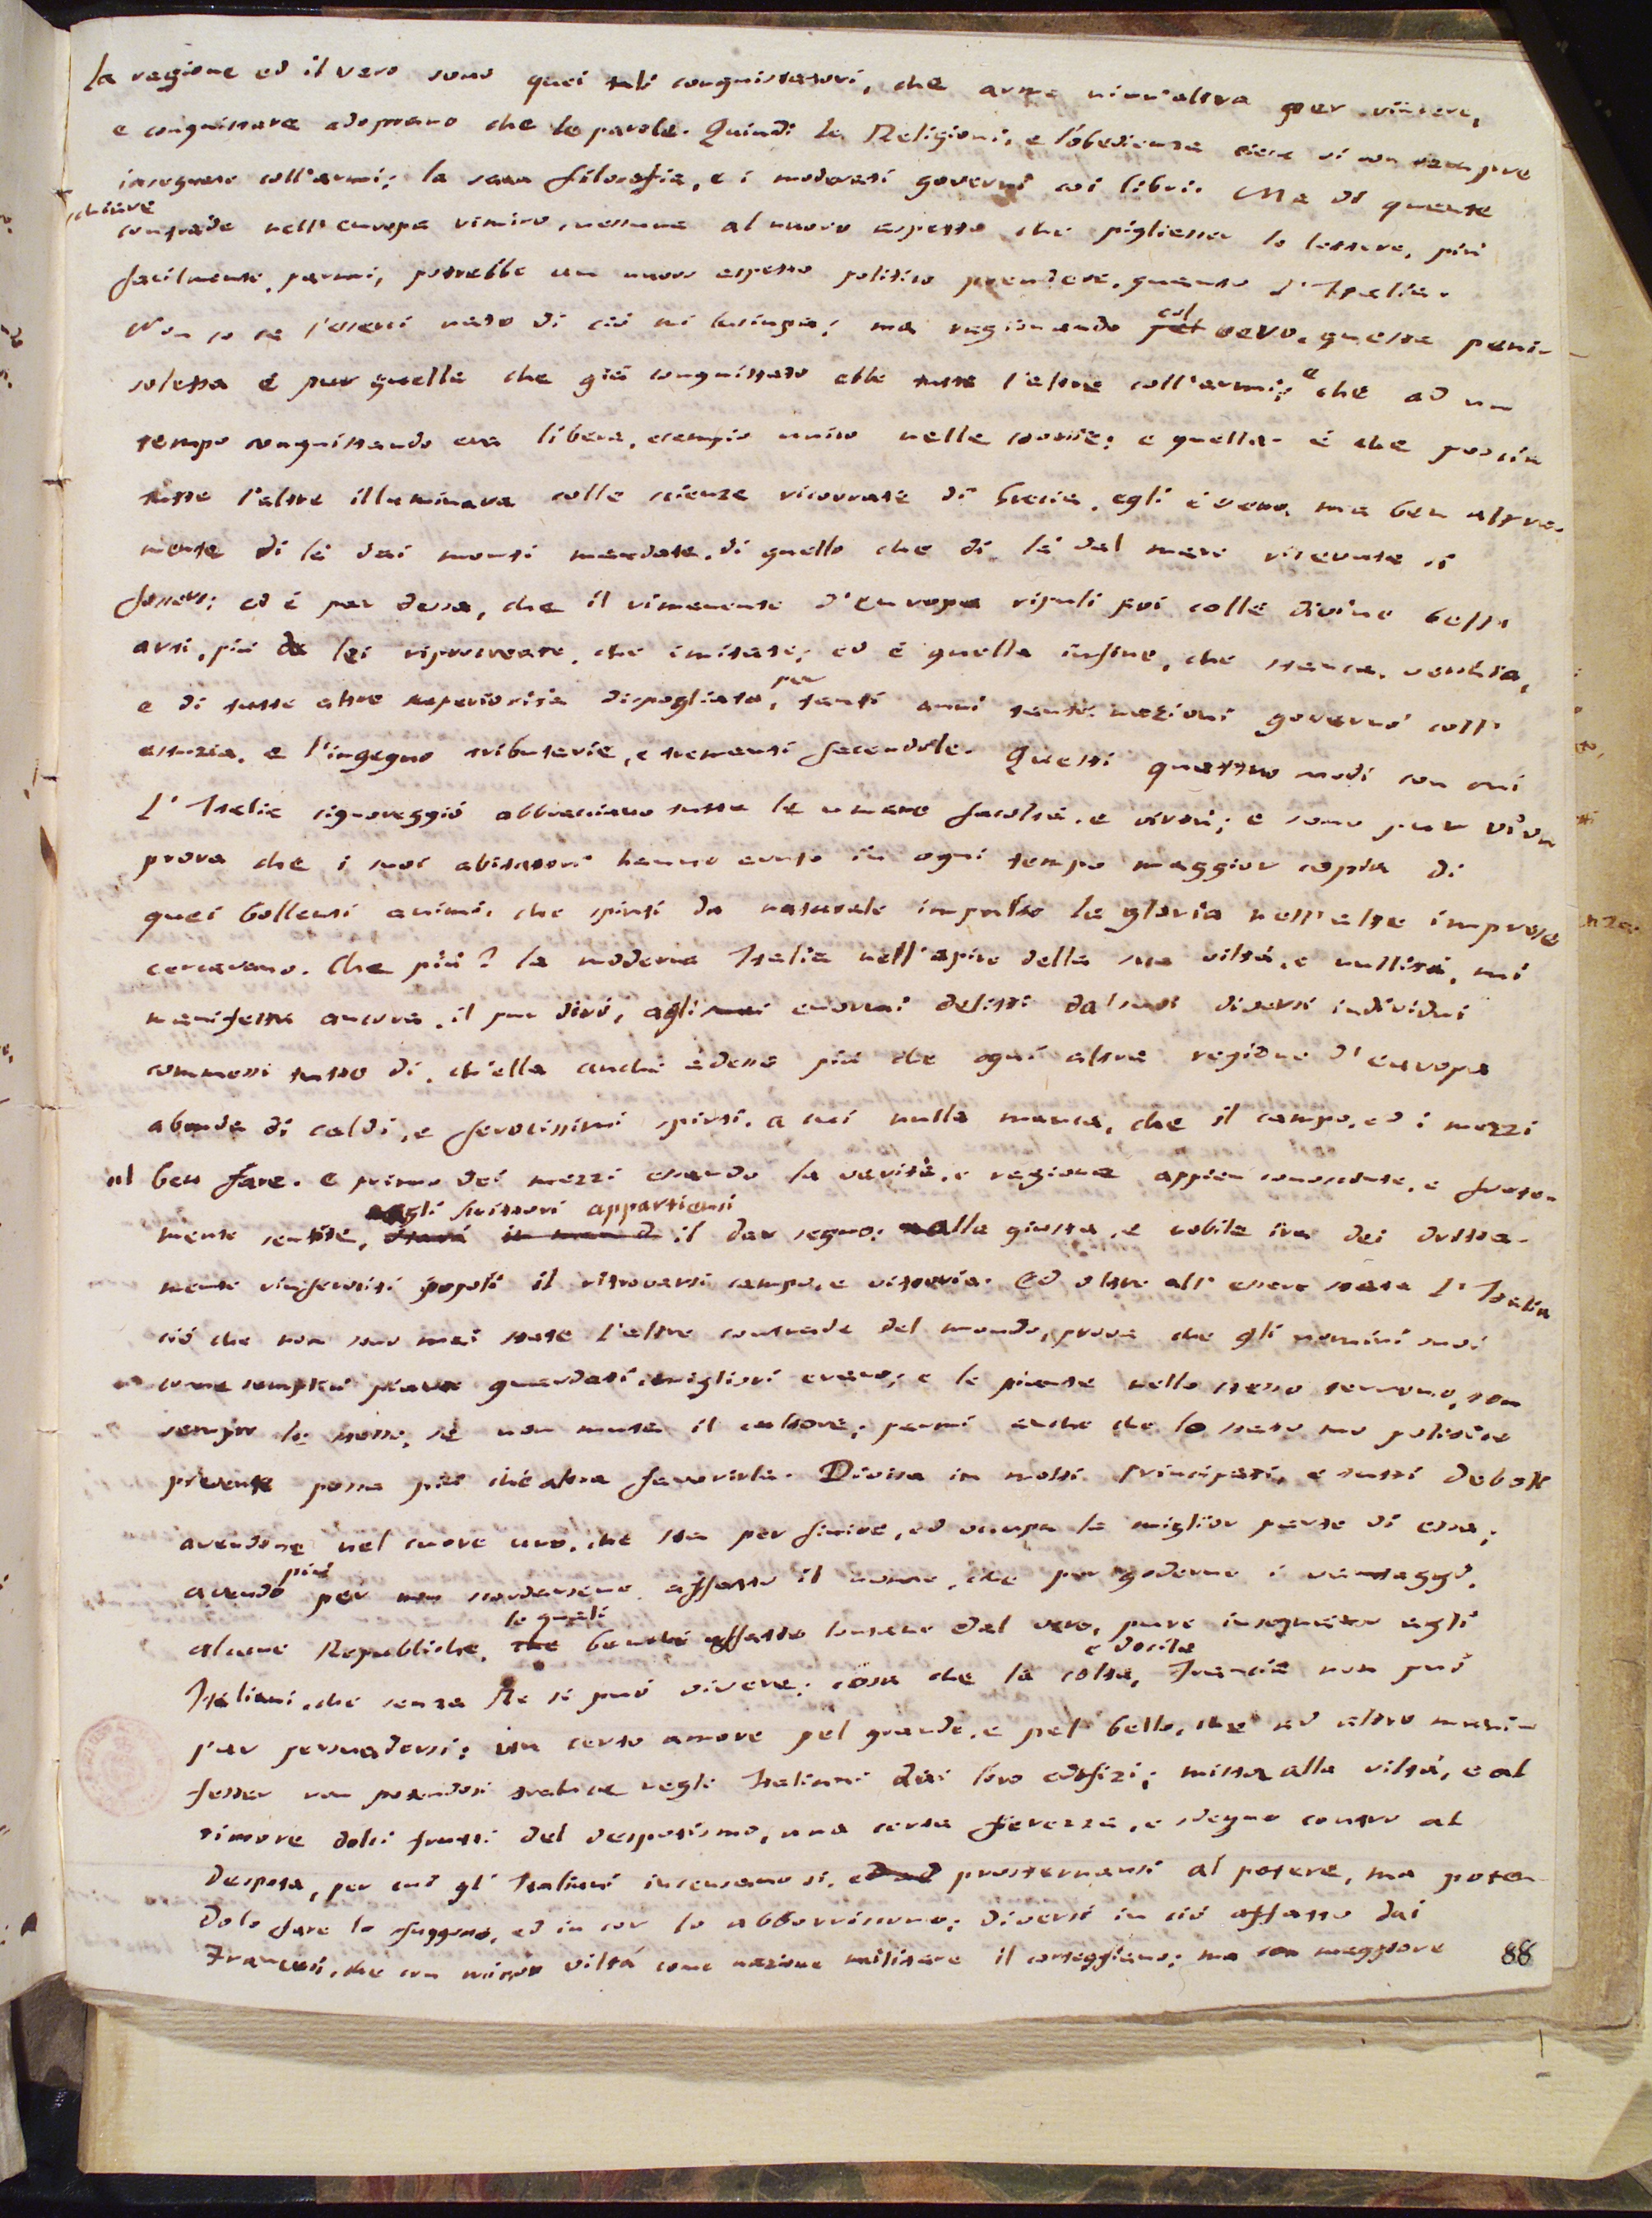 La ragione ed il vero sono quei tali conquistatori, che arme niun'altra per vincere,
e conquistare adoprano che le parole. Quindi le Religioni, e l'obedienza cieca si son sempre
insegnate coll'armi; la sana filosofia, e i moderati governi coi libri. Ma di quante
schiave
contrade nell'europa rimiro, nessuna al nuovo aspetto che pigliasser le lettere, più
facilmente, parmi, potrebbe un nuovo aspetto politico prendere, quanto l'Italia.
Non so se l'esserci nato di ciò mi lusinga; ma ragionando col pel vero, questa peni-
soletta è pur quella che già conquistato ebbe tutte l'altre coll'armi; e che ad un
tempo conquistando era libera, esempio unico nelle storie; e quella è che poscia
tutte l'altre illuminava colle scienze ricovrate di Grecia, egli è vero, ma ben altra-
mente di là dai monti mandate, di quello che di là dal mare ricevute si
fossero; ed è pur dessa, che il rimanente d'europa ripulì poi colle divine bell'
arti, più da lei riprocreate, che imitate; ed è quella infine, che stanca, vecchia,
e di tutte altre superiorità dispogliata, per tanti anni tante nazioni governò coll'
astuzia, e l'ingegno tributarie, e tremanti facendole. Questi quattro modi con cui
l'Italia signoreggiò abbracciano tutte le umane facoltà, e virtù; e sono pur viva
prova che i suoi abitatori hanno avuto in ogni tempo maggior copia di
quei bollenti animi, che spinti da naturale impulso la gloria nell'alte imprese
cercavano. Che più? la moderna Italia nell'apice della sua viltà, e nullità, mi
manifesta ancora, il pur dirò, agli enormi delitti dai suoi diversi individui
commessi tutto dì, ch'ella anche adesso più che ogni altra regione d'europa
abonda di caldi, e ferocissimi spirti, a cui nulla manca, che il campo, ed i mezzi
al ben fare. E primo dei mezzi essendo la verità, e ragione appien conosciute, e forte-
mente sentite, agli scrittori appartiensi il dar segno; alla giusta, e nobile ira dei dritta-
mente rinferociti popoli il ritrovarsi campo, e vittoria. Ed oltre all'essere stata l'Italia
ciò che non sono mai state l'altre contrade del mondo, prova che gli uomini suoi
come semplici piante guardati, migliori erano; e le piante nello stesso terreno, son
sempre le stesse, se non muta il cultore; parmi anche che lo stato suo politico
presente possa più che altra favorirla. Divisa in molti Principati, e tutti deboli
avendone nel cuore uno, che sta per finire, ed occupa la miglior parte di essa;
avendo più per non scordarsene affatto il nome, che per goderne i vantaggi,
alcune Repubbliche, le quali che benchè affatto lontane dal vero, pure insegnato agli
Italiani, che senza Re si può vivere; cosa che la colta, e docile Francia non può
pur persuadersi; un certo amore pel grande, e pel bello, che ad altro mani-
festar non potendosi traluce negli Italiani dai loro edifizi; mista alla viltà, e al
timore dolci frutti del despotismo, una certa fierezza, e sdegno contro al
Despota, per cui gl'Italiani incensano sì, ed prosternansi al potere, ma poten-
dolo fare lo fuggono, ed in cor lo abborriscono; diversi in ciò affatto dai
Francesi, che con minor viltà come nazione militare il corteggiano; ma con maggiore
88